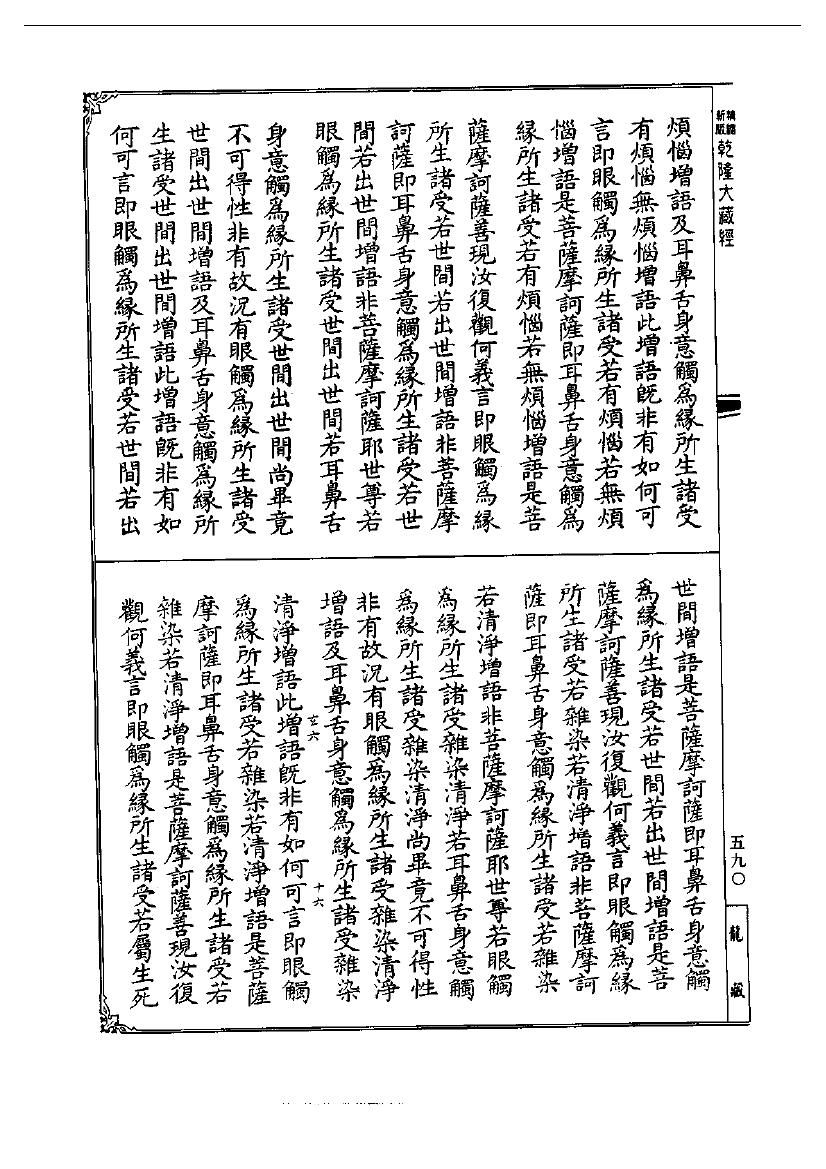 乾隆大藏經
煩惱增語及耳鼻舌身意觸爲緣所生諸受
有煩惱無煩惱增語此增語既非有如何可
言即眼觸爲緣所生諸受若有煩惱若無煩
惱增語是菩薩摩訶薩即耳鼻舌身意觸爲
緣所生諸受若有煩惱若無煩惱增語是菩
薩摩訶薩善現汝復觀何義言即眼觸爲緣
所生諸受若世間若出世間增語非菩薩摩
訶薩即耳鼻舌身意觸爲緣所生諸受若世
間若出世間增語非菩薩摩訶薩耶世尊若
眼觸爲緣所生諸受世間出世間若耳鼻舌
身意觸爲緣所生諸受世間出世間尚畢竟
不可得性非有故況有眼觸爲緣所生諸受
世間出世間增語及耳鼻舌身意觸爲緣所
生諸受世間出世間增語此增語既非有如
何可言即眼觸爲緣所生諸受若世間若出
世間增語是菩薩摩訶薩即耳鼻舌身意觸
爲緣所生諸受若世間若出世間增語是菩
薩摩訶薩善現汝復觀何義言即眼觸爲緣
所生諸受若雜染若清淨增語非菩薩摩訶
薩即耳鼻舌身意觸爲緣所生諸受若雜染
若清淨增語非菩薩摩訶薩耶世尊若眼觸
爲緣所生諸受雜染清淨若耳鼻舌身意觸
爲緣所生諸受雜染清淨尚畢竟不可得性
非有故況有眼觸爲緣所生諸受雜染清淨
增語及耳鼻舌身意觸爲緣所生諸受雜染
十六
清淨增語此增語既非有如何可言即眼觸
爲緣所生諸受若雜染若清淨增語是菩薩
摩訶薩即耳鼻舌身意觸爲緣所生諸受若
雜染若清淨增語是菩薩摩訶薩善現汝復
觀何義言即眼觸爲緣所生諸受若屬生死
五九〇
龍藏